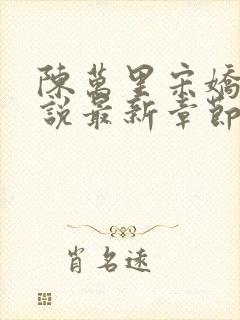 陳萬里宋嬌
說最新章節
肖名遠